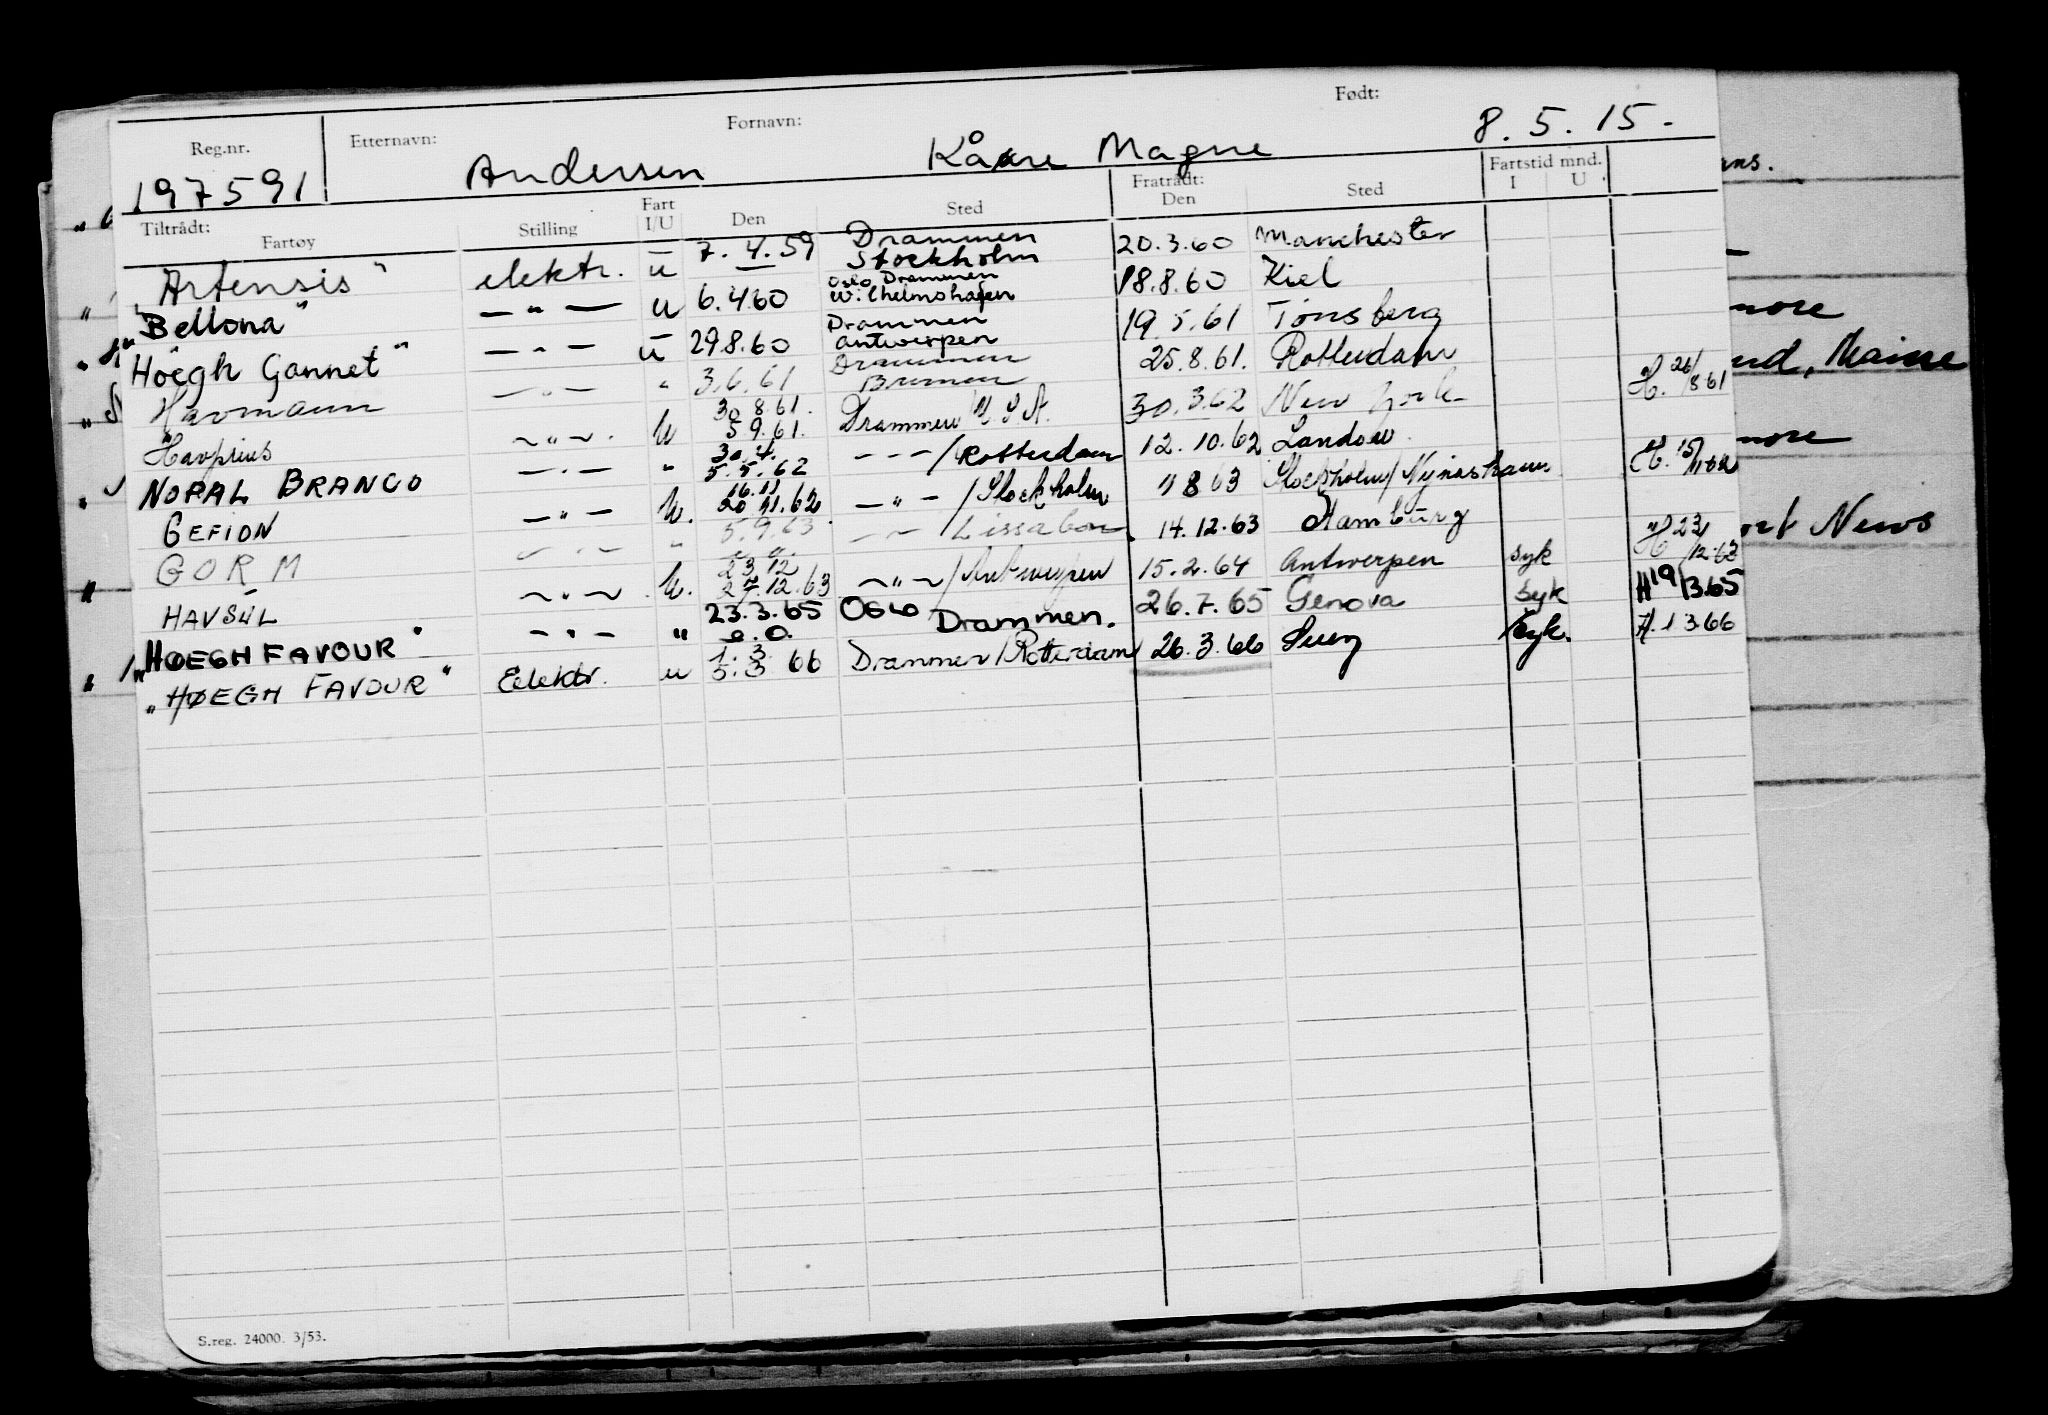 Reg.nr. Etternavn: Fornavn: Født:
197591 Andersen Kåre Magne 8.5.15.
Tiltrådt: Fratrådt: Fartstid mnd.
Fartøy Stilling Fart I/U Den Sted Den Sted I U
"Artensis" elektr. u 7.4.59 Drammen Stockholm 20.3.60 Manchester
"Bellona" — " — u 6.4.60 Oslo Drammen Wilhelmshafen 18.8.60 Kiel
"Höegh Gannet" — " — u 29.8.60 Drammen Antwerpen 19.5.61 Tönsberg
Havmann — " — " 3.6.61 Drammen Bremen 25.8.61. Rotterdam
Havprins — " — . U 30.8.61. 5.9.61. Drammen/U.S.A. 30.3.62 New York H. 26/8.61
NOPAL BRANCO — " — " 30.4. 5.5.62 — - —/Rotterdam 12.10.62 London
GEFION — " — U. 16.11 20.11.62 — " — /Stockholm 1 8 63 Stockholm/Nynäshamn H. 15/11.62
GORM — " — " 5.9.63. — " — Lissabon 14.12.63 Hamburg
HAVSÚL — " — . U. 23.12 27.12.63 — " —/Antwerpen 15.2.64 Antwerpen syk H 23/12.63
"HØEGH FAVOUR" — " — " 23.3.65 e.o. OSLO Drammen. 26.7.65 Genova syk H 19/3.65
"HØEGH FAVOUR" Elektr. u 1.3. 5.3 66 Drammen/Rotterdam 26.3.66 Suez syk. H. 1 3.66
more
nd, Maine
more
ort News
S.reg. 24000. 3/53.